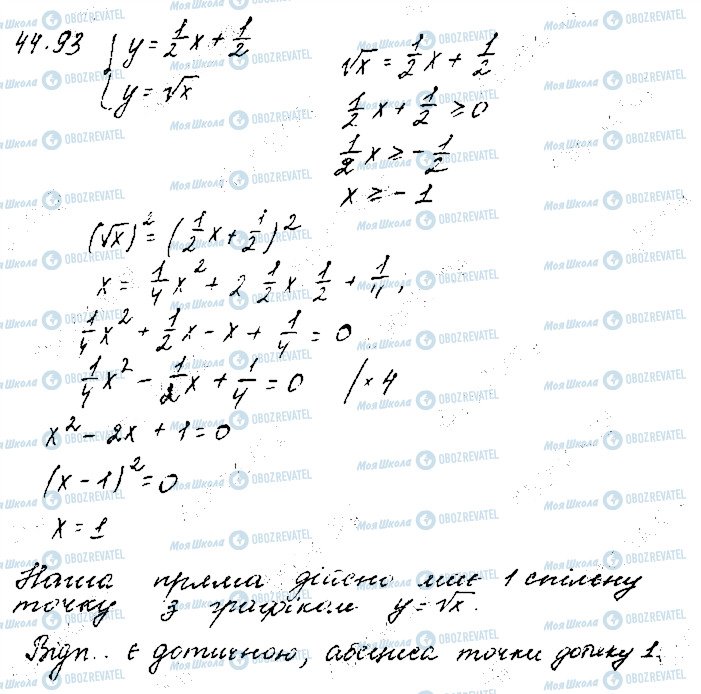 44.93 { y = 1/2 x + 1/2
y = √x
√x = 1/2 x + 1/2
1/2 x + 1/2 ≥ 0
1/2 x ≥ - 1/2
x ≥ - 1
(√x)² = (1/2 x + 1/2)²
x = 1/4 x² + 2 1/2 x 1/2 + 1/4;
1/4 x² + 1/2 x - x + 1/4 = 0
1/4 x² - 1/2 x + 1/4 = 0 / × 4
x² - 2x + 1 = 0
(x - 1)² = 0
x = 1
Наша пряма дійсно має 1 спільну
точку з графіком y = √x.
Відп.: є дотичною, абсциса точки дотику 1.